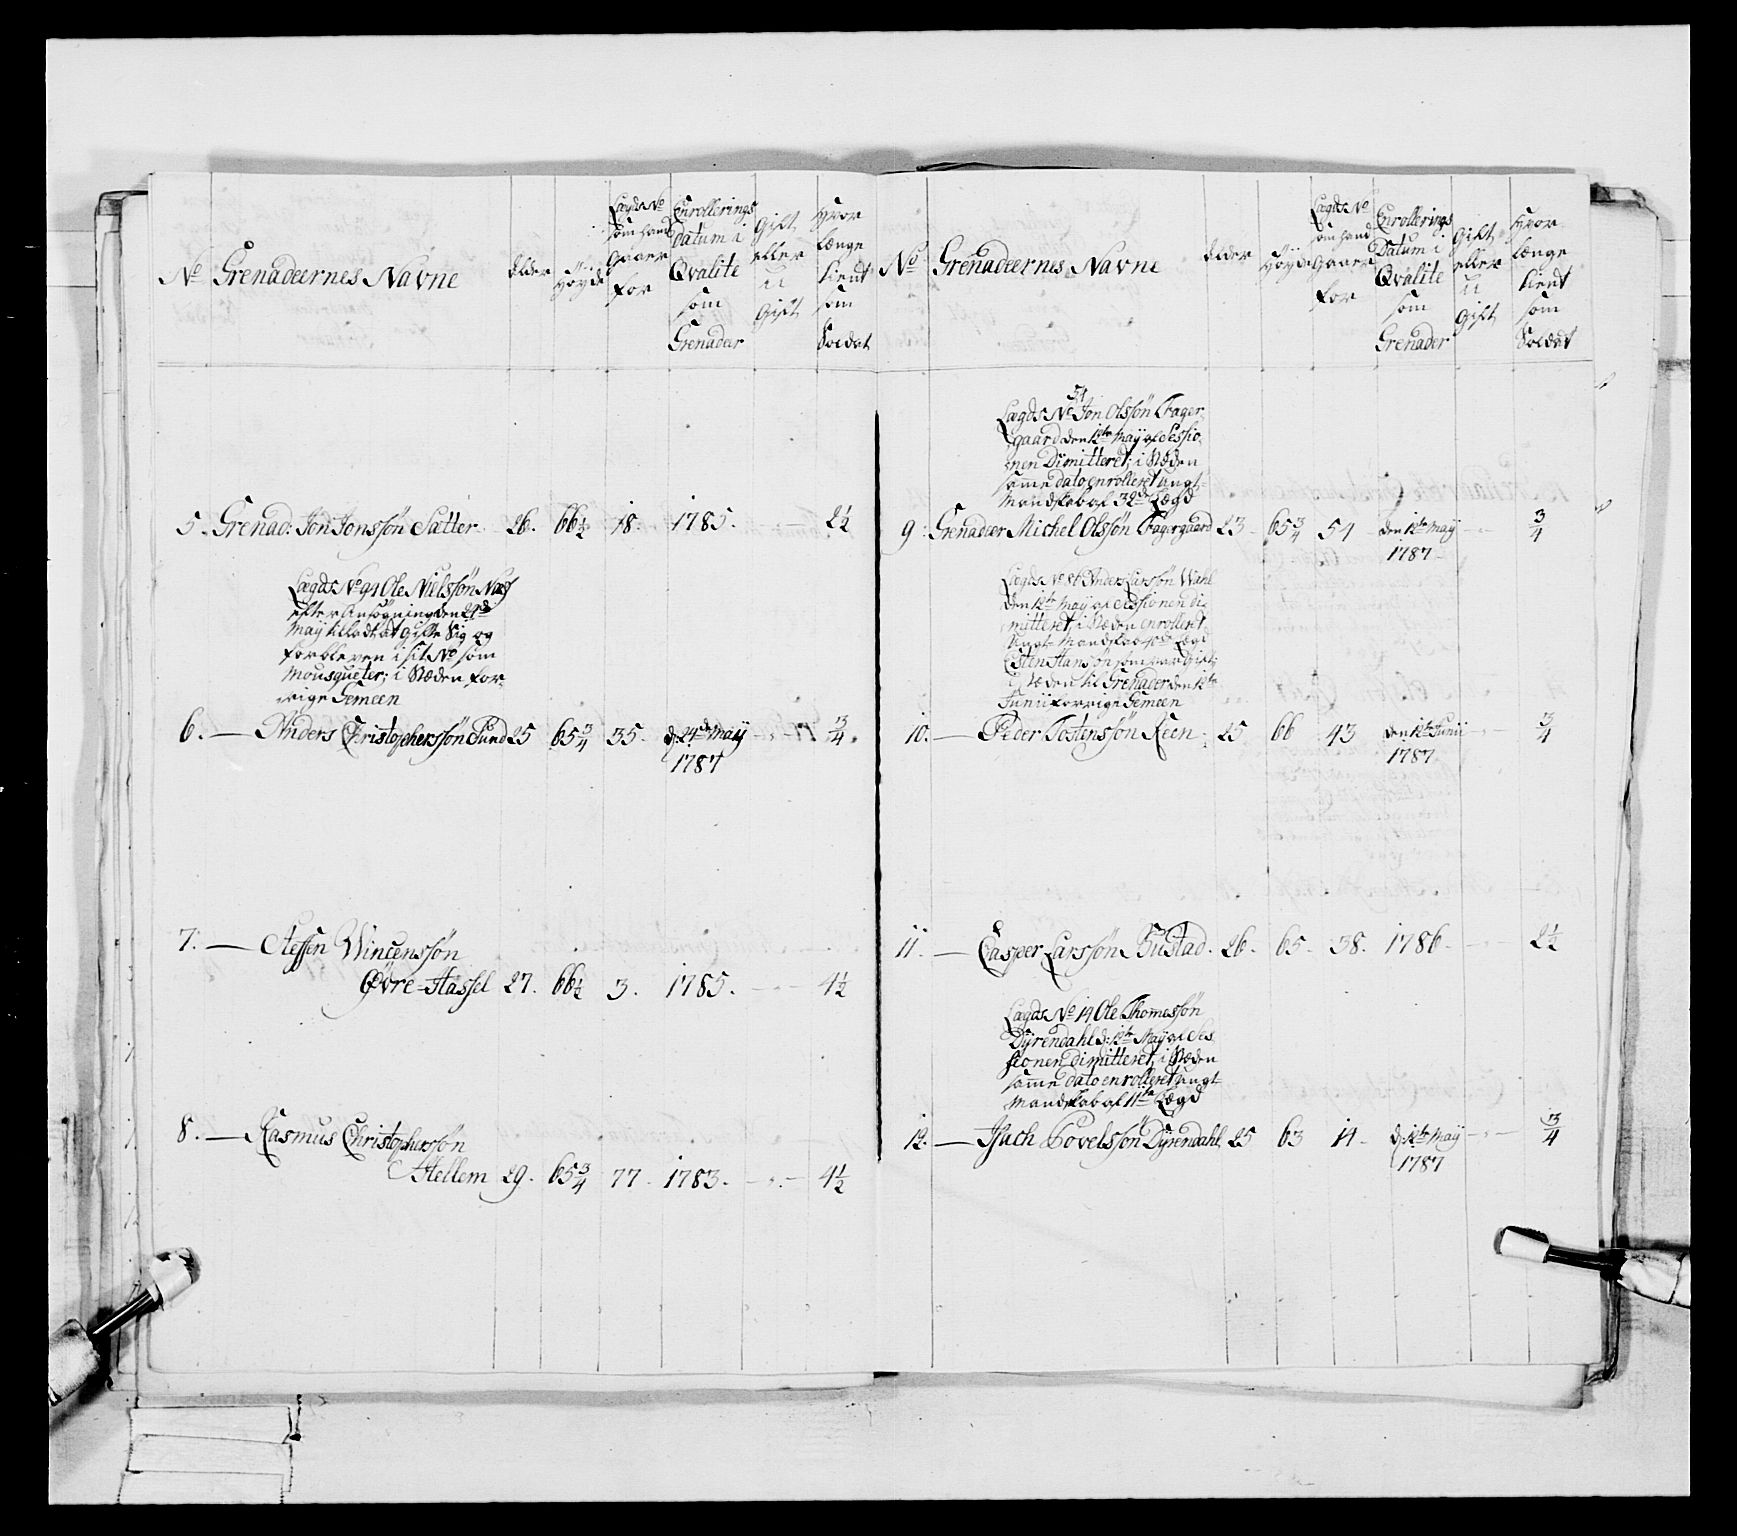 No
Grenadeernes Navne
Alder
Höyde
Lægds No som hand gaaer for
Enrollerings Datum i Qvalite som Grenadeer
Gift eller u Gift
Hvor længe tient som Soldat
5. Grenad: Jon Jonssön Sætter 26. 66½ 18. 1785. — 2½
Lægds No 94 Ole Nielssön Næss
efter Ansögning den 24de
May tilladt at gifte Sig og
forbleven i sit No som
Mousqueter; i Stæden for-
rige Gemeen
6. — Anders Christopherssön Sund 25 65¾ 35. d: 24de May — ¾
1787
7. — Steffen Wincenssön
Øvre-Hassel 27. 66½ 3. 1785. — 4½
8. — Rasmus Christopherssön
Hellem 29. 65¾ 77. 1783. — 4½
No
Grenadeernes Navne
Alder
Höyde
Lægds No som hand gaaer for
Enrollerings Datum i Qvalite som Grenadeer
Gift eller u Gift
Hvor længe tient som Soldat
54
Lægds No Jon Olssön Fager-
gaard den 12te May af Sessio-
nen Dimitteret; i Stæden
samme dato enrolleret ungt
Mandskab af 32de Lægd
9. Grenadeer Michel Olssön Fagergaard 23 65¾ 54 den 12te May — ¾
1787
Lægds No Anders Larssön Wahl
den 12te May af Sessionen Di-
mitteret, i Stæden enrolleret
Ungt Mandskab Lægd
Hanssön som var Gift;
i Stæden til Grenadeer den 12te
Junii forrige Gemeen
10. — Peder Tostenssön Reen 25 66 43 den 12te Junii — ¾
1787
11. — Casper Larssön Bustad. 26. 65. 38. 1786. — 2½
Lægds No 14 Ole Thomessön
Dyrendahl d: 12te May af Ses-
sionen dimitteret, i Stæden
samme dato enrolleret ungt
Mandskab af 11te Lægd
12. — Isach Povelssön Dyrendahl 25 63 14 d: 12te May — ¾
1787